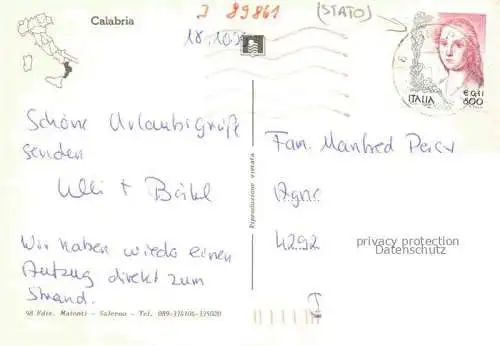 J 89861
(STATO)
Calabria
18.10.
€ 0,41
600
ITALIA
Schöne Urlaubsgrüße
senden
Ulli + Bärbel
Wir haben wieder einen
Aufzug direkt zum
Strand.
Fam. Manfred
4292
privacy protection
Datenschutz
I
Riproduzione vietata
98 Ediz. Matonti - Salerno - Tel. 089-338104-335020